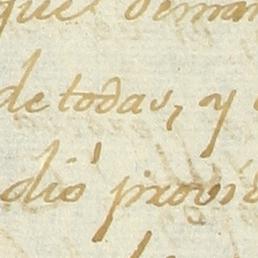 que deman
de todas, y
dió provi